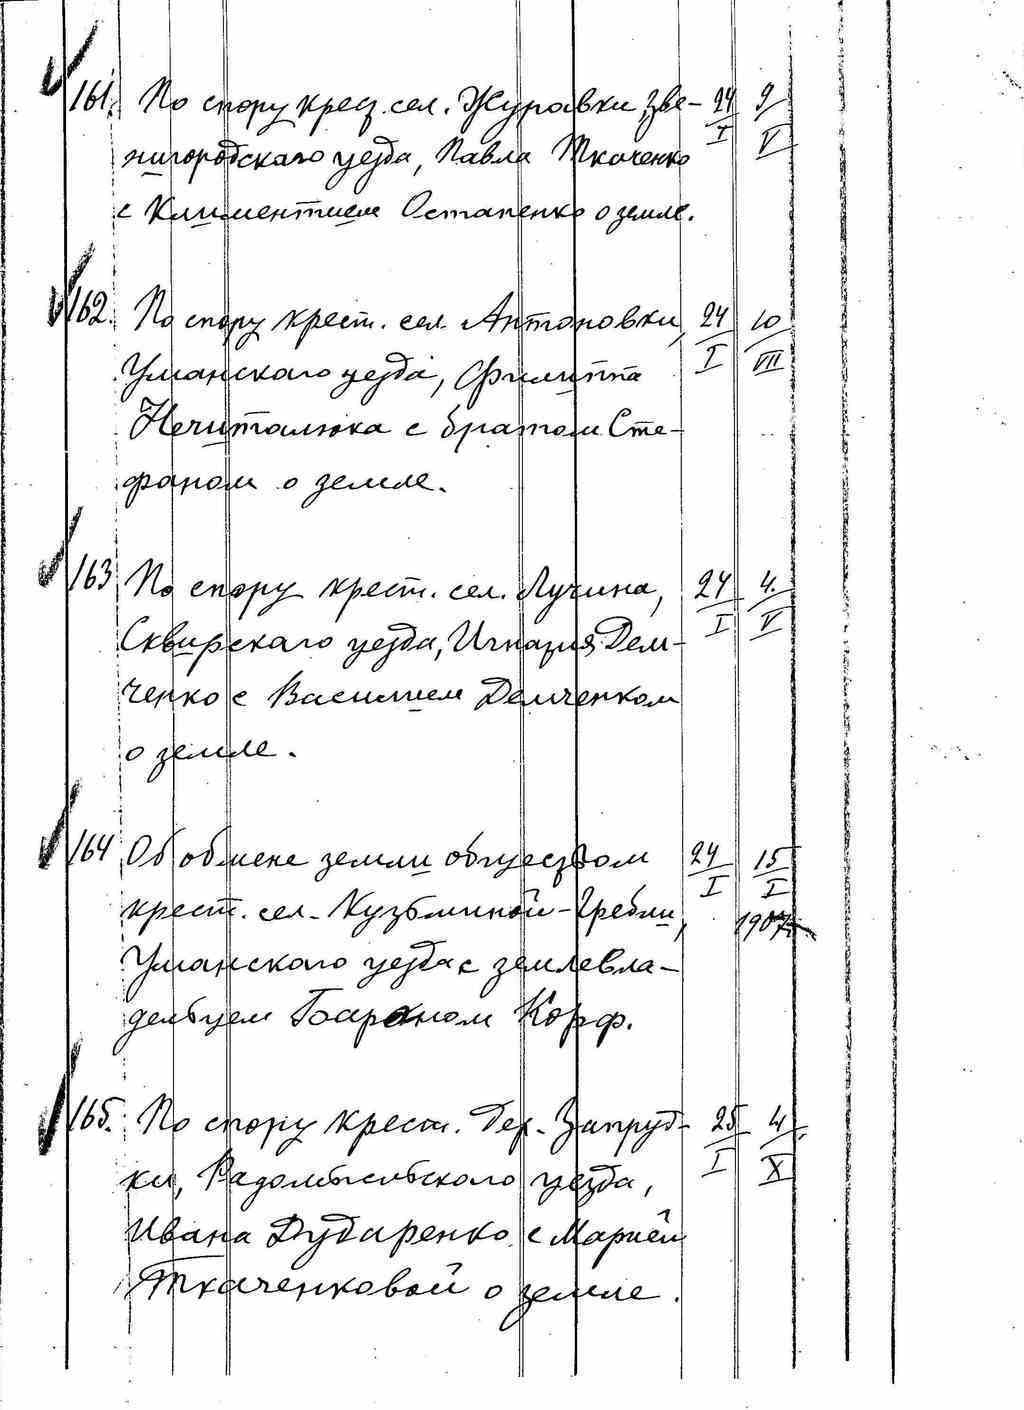 161. По спору крест. сел. Журавки, Зве- 24/I 9/V
нигородскаго уезда, Павла Ткаченко
с Климентием Остапенко о земле.
162. По спору крест. сел. Антоновки, 24/I 10/VII
Уманскаго уезда, Филиппа
Нечиталюка с братом Сте-
фаном о земле.
163 По спору крест. сел. Лучина, 24/I 4./V
Сквирскаго уезда, Игнатия Дем-
ченко с Василием Демченком
о земле.
164 Об обмене земли обществом 24/I 15/I
крест. сел. Кузьминой-Гребли, 1907
Уманскаго уезда с землевла-
дельцем Бароном Корф.
165. По спору крест. дер. Запруд- 25/I 4/X
ки, Радомысльскаго уезда,
Ивана Дударенко с Марией
Ткаченковой о земле.